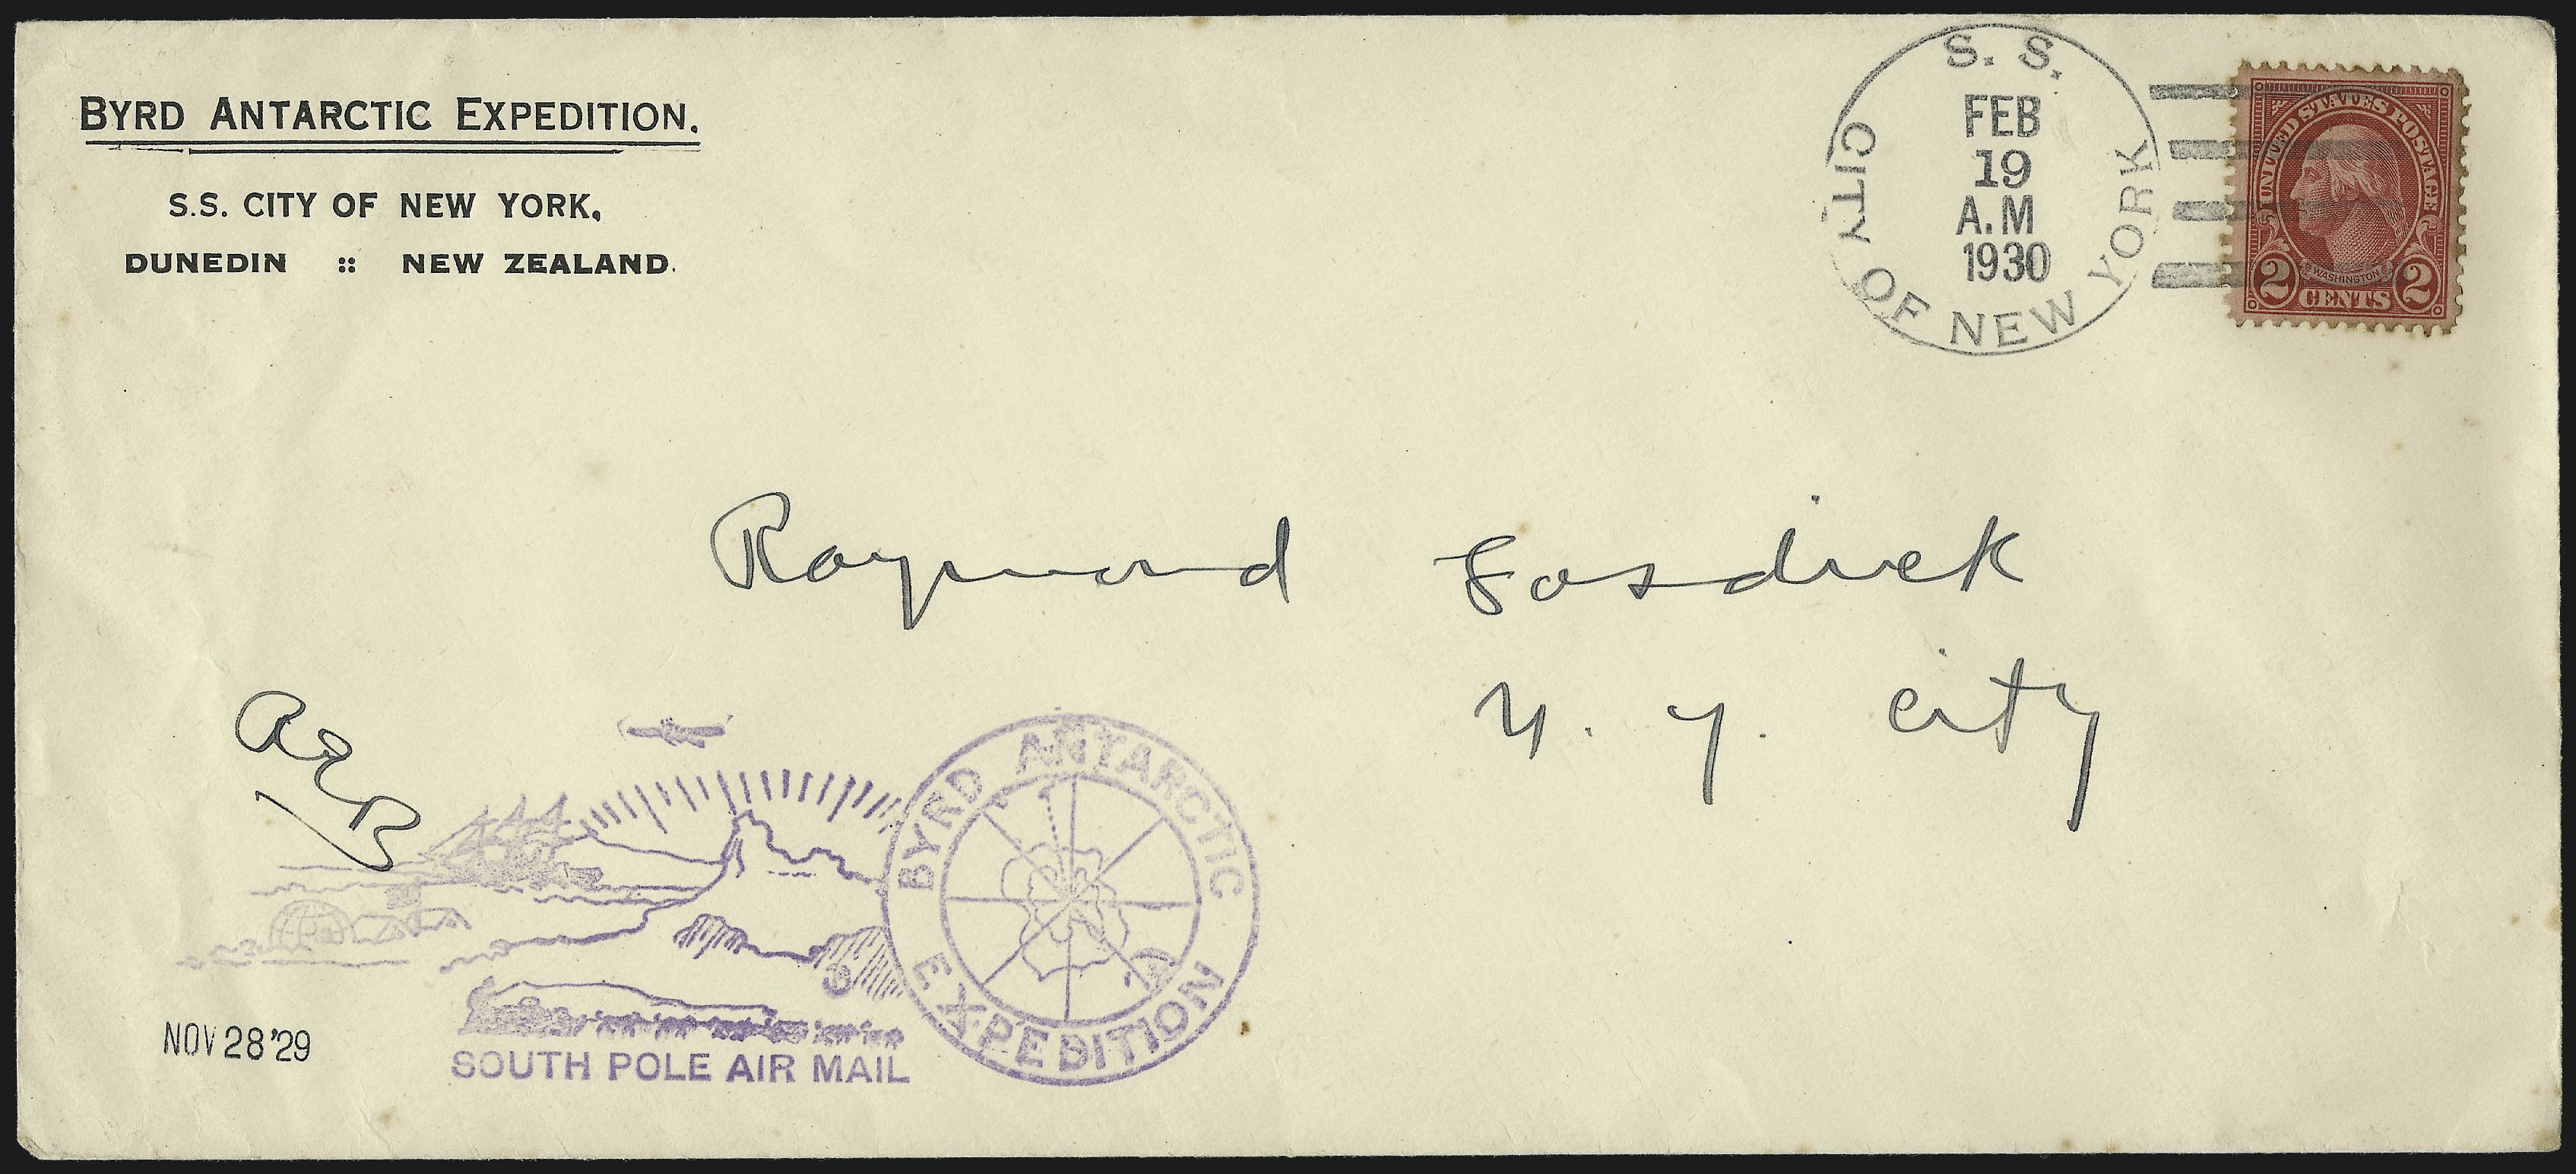 BYRD ANTARCTIC EXPEDITION.
S.S. CITY OF NEW YORK,
DUNEDIN :: NEW ZEALAND.
S. S.
CITY OF NEW YORK
FEB
19
A.M
1930
UNITED STATES POSTAGE
WASHINGTON
2 CENTS 2
Raymond Fosdick
N. Y. City
BYRD ANTARCTIC
EXPEDITION
SOUTH POLE AIR MAIL
NOV 28 '29